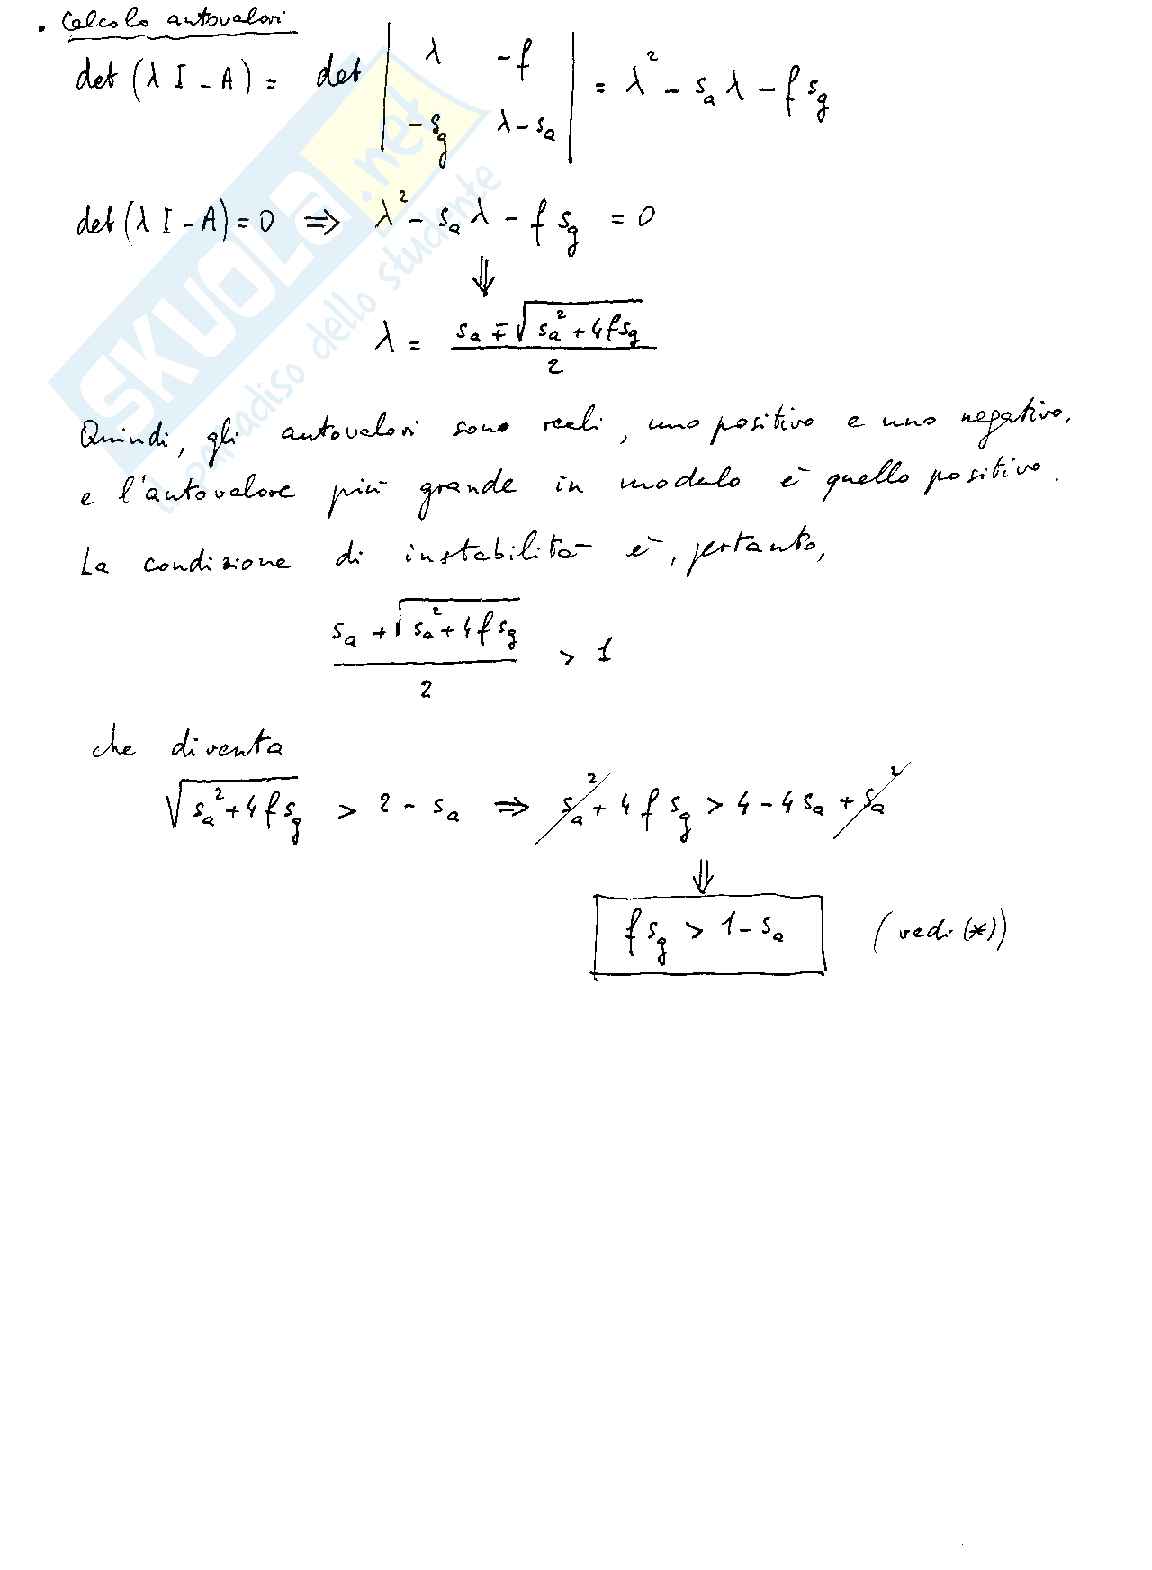 . Calcolo autovalori
det (λ I - A) = det | λ -f ; -s_g λ-s_a | = λ² - s_a λ - f s_g
det (λ I - A) = 0 ⇒ λ² - s_a λ - f s_g = 0
⇓
λ = (s_a ∓ √(s_a² + 4 f s_g)) / 2
Quindi, gli autovalori sono reali, uno positivo e uno negativo,
e l'autovalore più grande in modulo è quello positivo.
La condizione di instabilità è, pertanto,
(s_a + √(s_a² + 4 f s_g)) / 2 > 1
che diventa
√(s_a² + 4 f s_g) > 2 - s_a ⇒ s_a² + 4 f s_g > 4 - 4 s_a + s_a²
⇓
f s_g > 1 - s_a (vedi (*))
SKUOLA.net
il paradiso dello studente